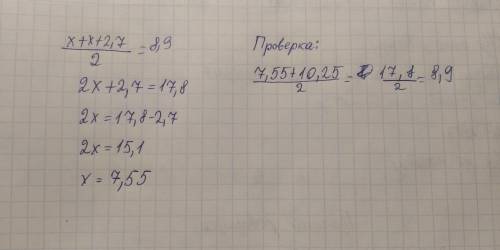 (x+x+2,7)/2 = 8,9
2x+2,7=17,8
2x=17,8-2,7
2x=15,1
x=7,55
Проверка:
(7,55+10,25)/2 = 17,8/2 = 8,9